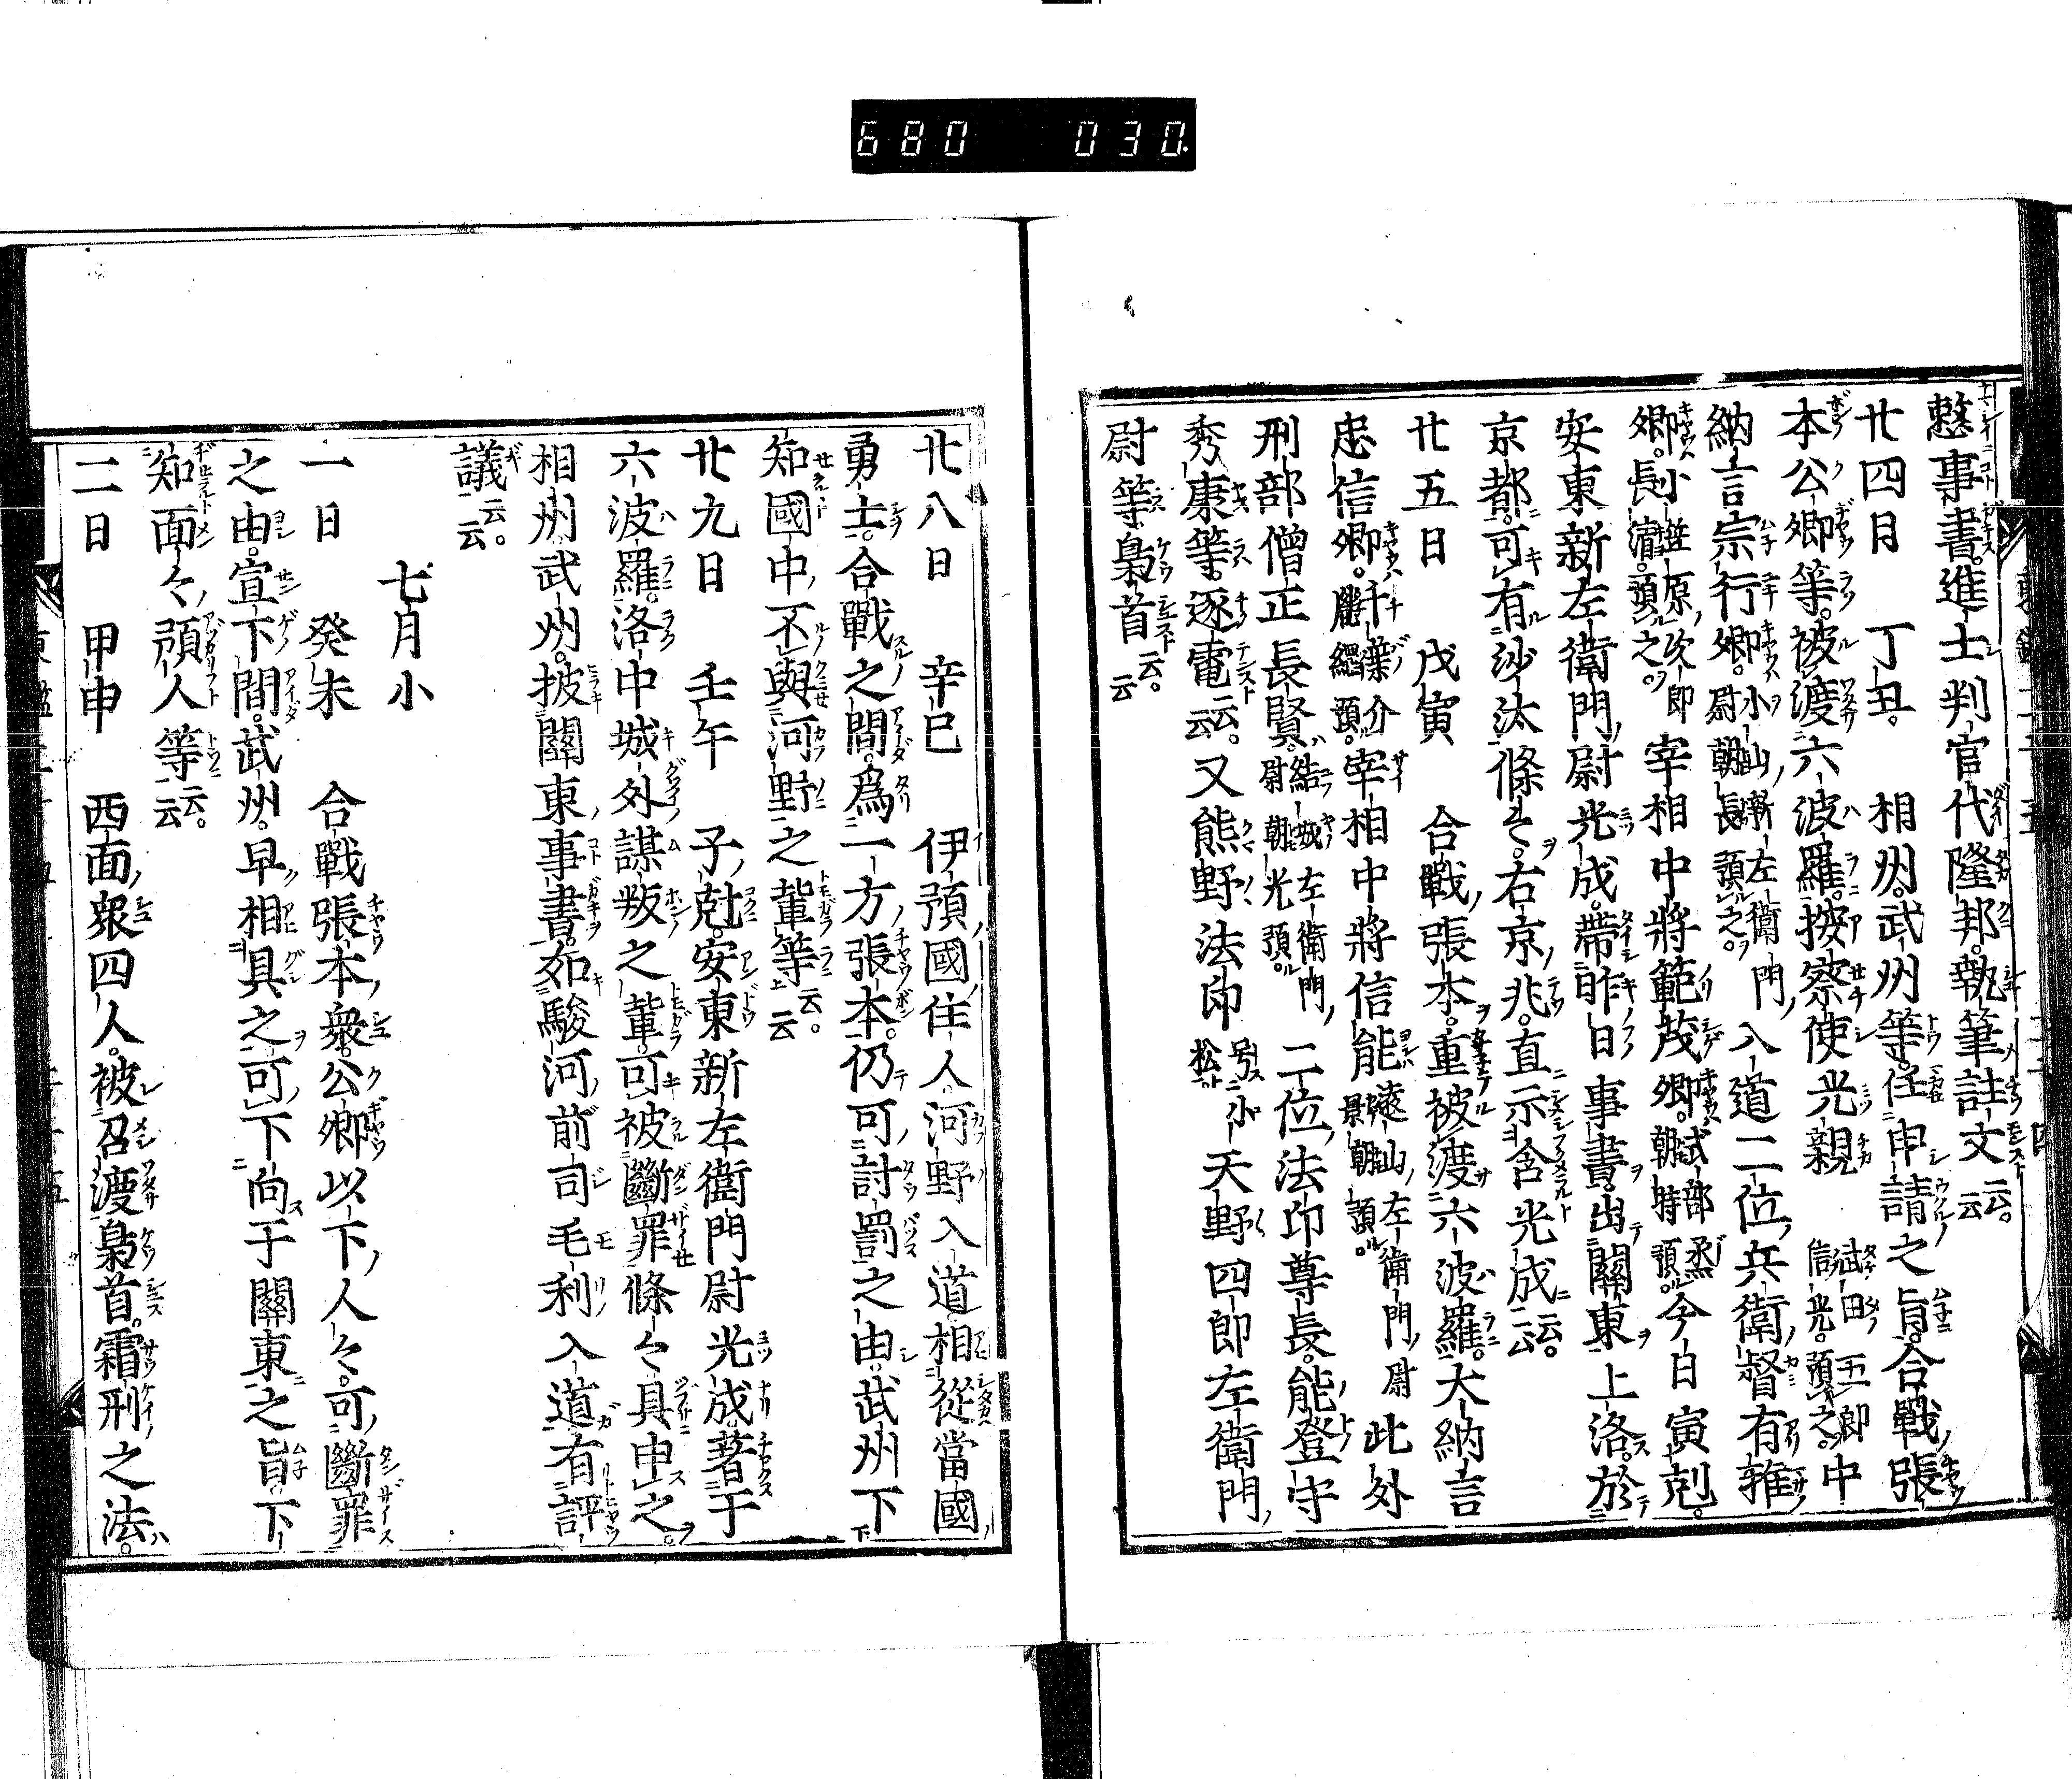 680 030
整事書。進士判官代隆邦。執筆註文云云。
廿四日 丁丑。 相州。武州等。任申請之旨。合戰張
本公卿等。被渡六波羅。按察使光親 武田五郎信光。預之。 中
納言宗行卿。小山新左衛門尉朝長預之。 入道二位兵衛督有雅
卿。小笠原次郎長淸。預之。 宰相中將範茂卿。式部丞朝時預。 今日寅剋。
安東新左衛門尉光成。帶昨日事書出關東上洛。於
京都。可有沙汰條々。右京兆。直示含光成云云。
廿五日 戊寅 合戰張本。重被渡六波羅。大納言
忠信卿。千葉介胤綱預。 宰相中將信能 遠山左衛門尉景朝預。 此外
刑部僧正長賢。結城左衛門尉朝光預。 二位法印尊長。能登守
秀康等。逐電云云。又熊野法印 号小松 天野四郎左衛門
尉等梟首云云。
廿八日 辛巳 伊預國住人河野入道。相從當國
勇士。合戰之間。爲一方張本。仍可討罰之由。武州下
知國中不與河野之輩等云云。
廿九日 壬午 子剋。安東新左衛門尉光成。著于
六波羅。洛中城外謀叛之輩。可被斷罪條々具申之。
相州武州。披關東事書。如駿河前司毛利入道有評
議云云。
七月小
一日 癸未 合戰張本衆。公卿以下人々。可斷罪
之由。宣下間。武州。早相具之。可下向于關東之旨。下
知面々預人等云云。
二日 甲申 西面衆四人。被召渡梟首。霜刑之法。